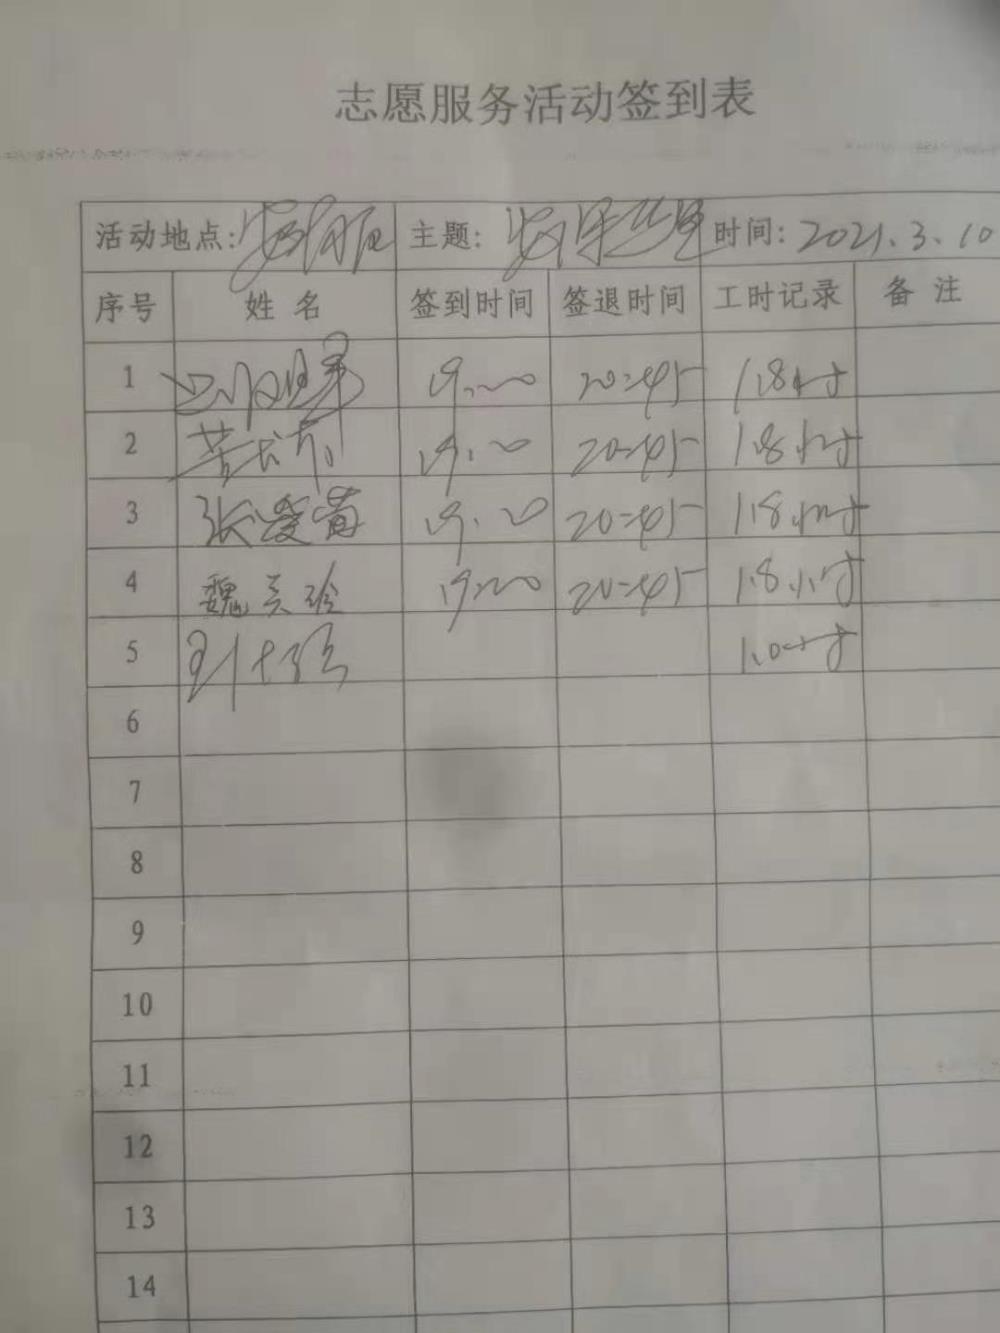 志愿服务活动签到表
活动地点: 主题: 时间: 2021.3.10
序号 姓名 签到时间 签退时间 工时记录 备注
1 19:00 20:45 1.8小时
2 19:00 20:45 1.8小时
3 张爱菊 19:00 20:45 1.8小时
4 魏美玲 19:00 20:45 1.8小时
5 1.0小时
6
7
8
9
10
11
12
13
14